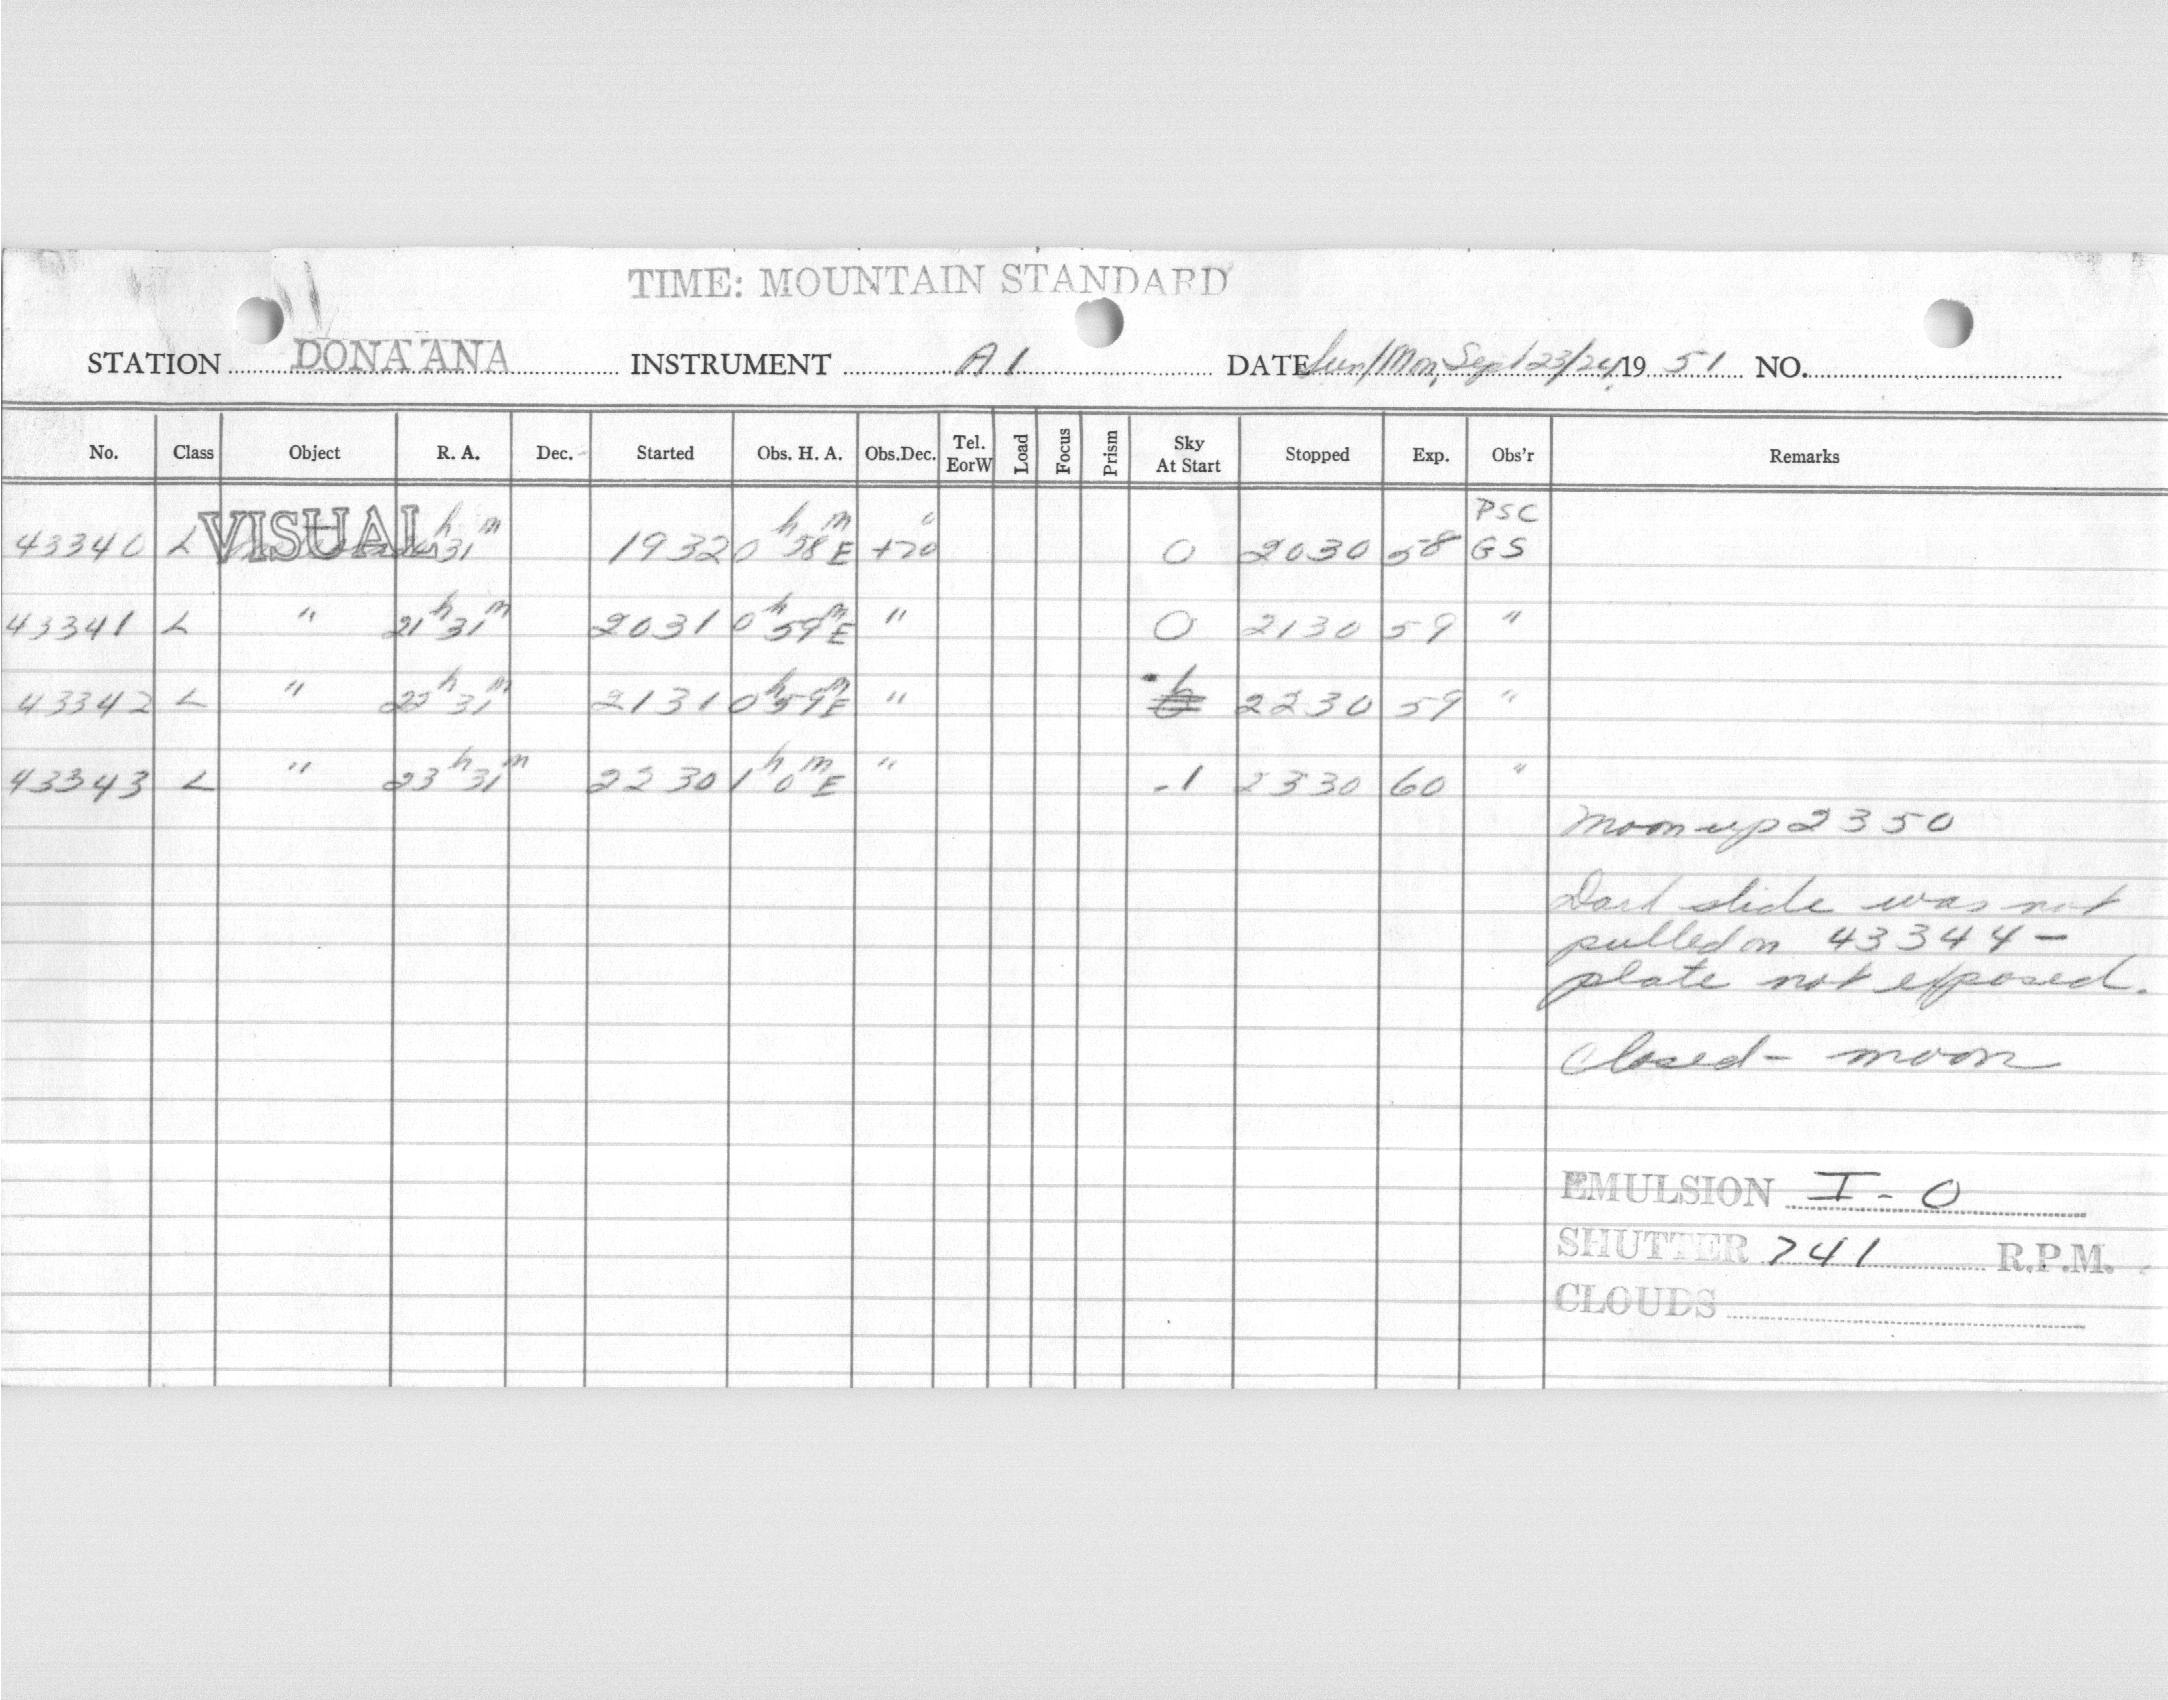 TIME: MOUNTAIN STANDARD
STATION DONA ANA INSTRUMENT A1 DATE Sun/Mon, Sept 23/24, 19 51 NO.
No. Class Object R. A. Dec. Started Obs. H. A. Obs.Dec. Tel. EorW Load Focus Prism Sky At Start Stopped Exp. Obs'r Remarks
PSC
43340 L VISUAL 31m 1932 0h 58m E +70° 0 2030 58 GS
43341 L " 21h 31m 2031 0h 59m E " 0 2130 59 "
43342 L " 22h 31m 2131 0h 59m E " 2230 59 "
43343 L " 23h 31m 2230 1h 0m E " -1 2330 60 "
Moon up 2350
Dark slide was not
pulled on 43344 -
plate not exposed.
Closed - moon
EMULSION I - O
SHUTTER 741 R.P.M.
CLOUDS